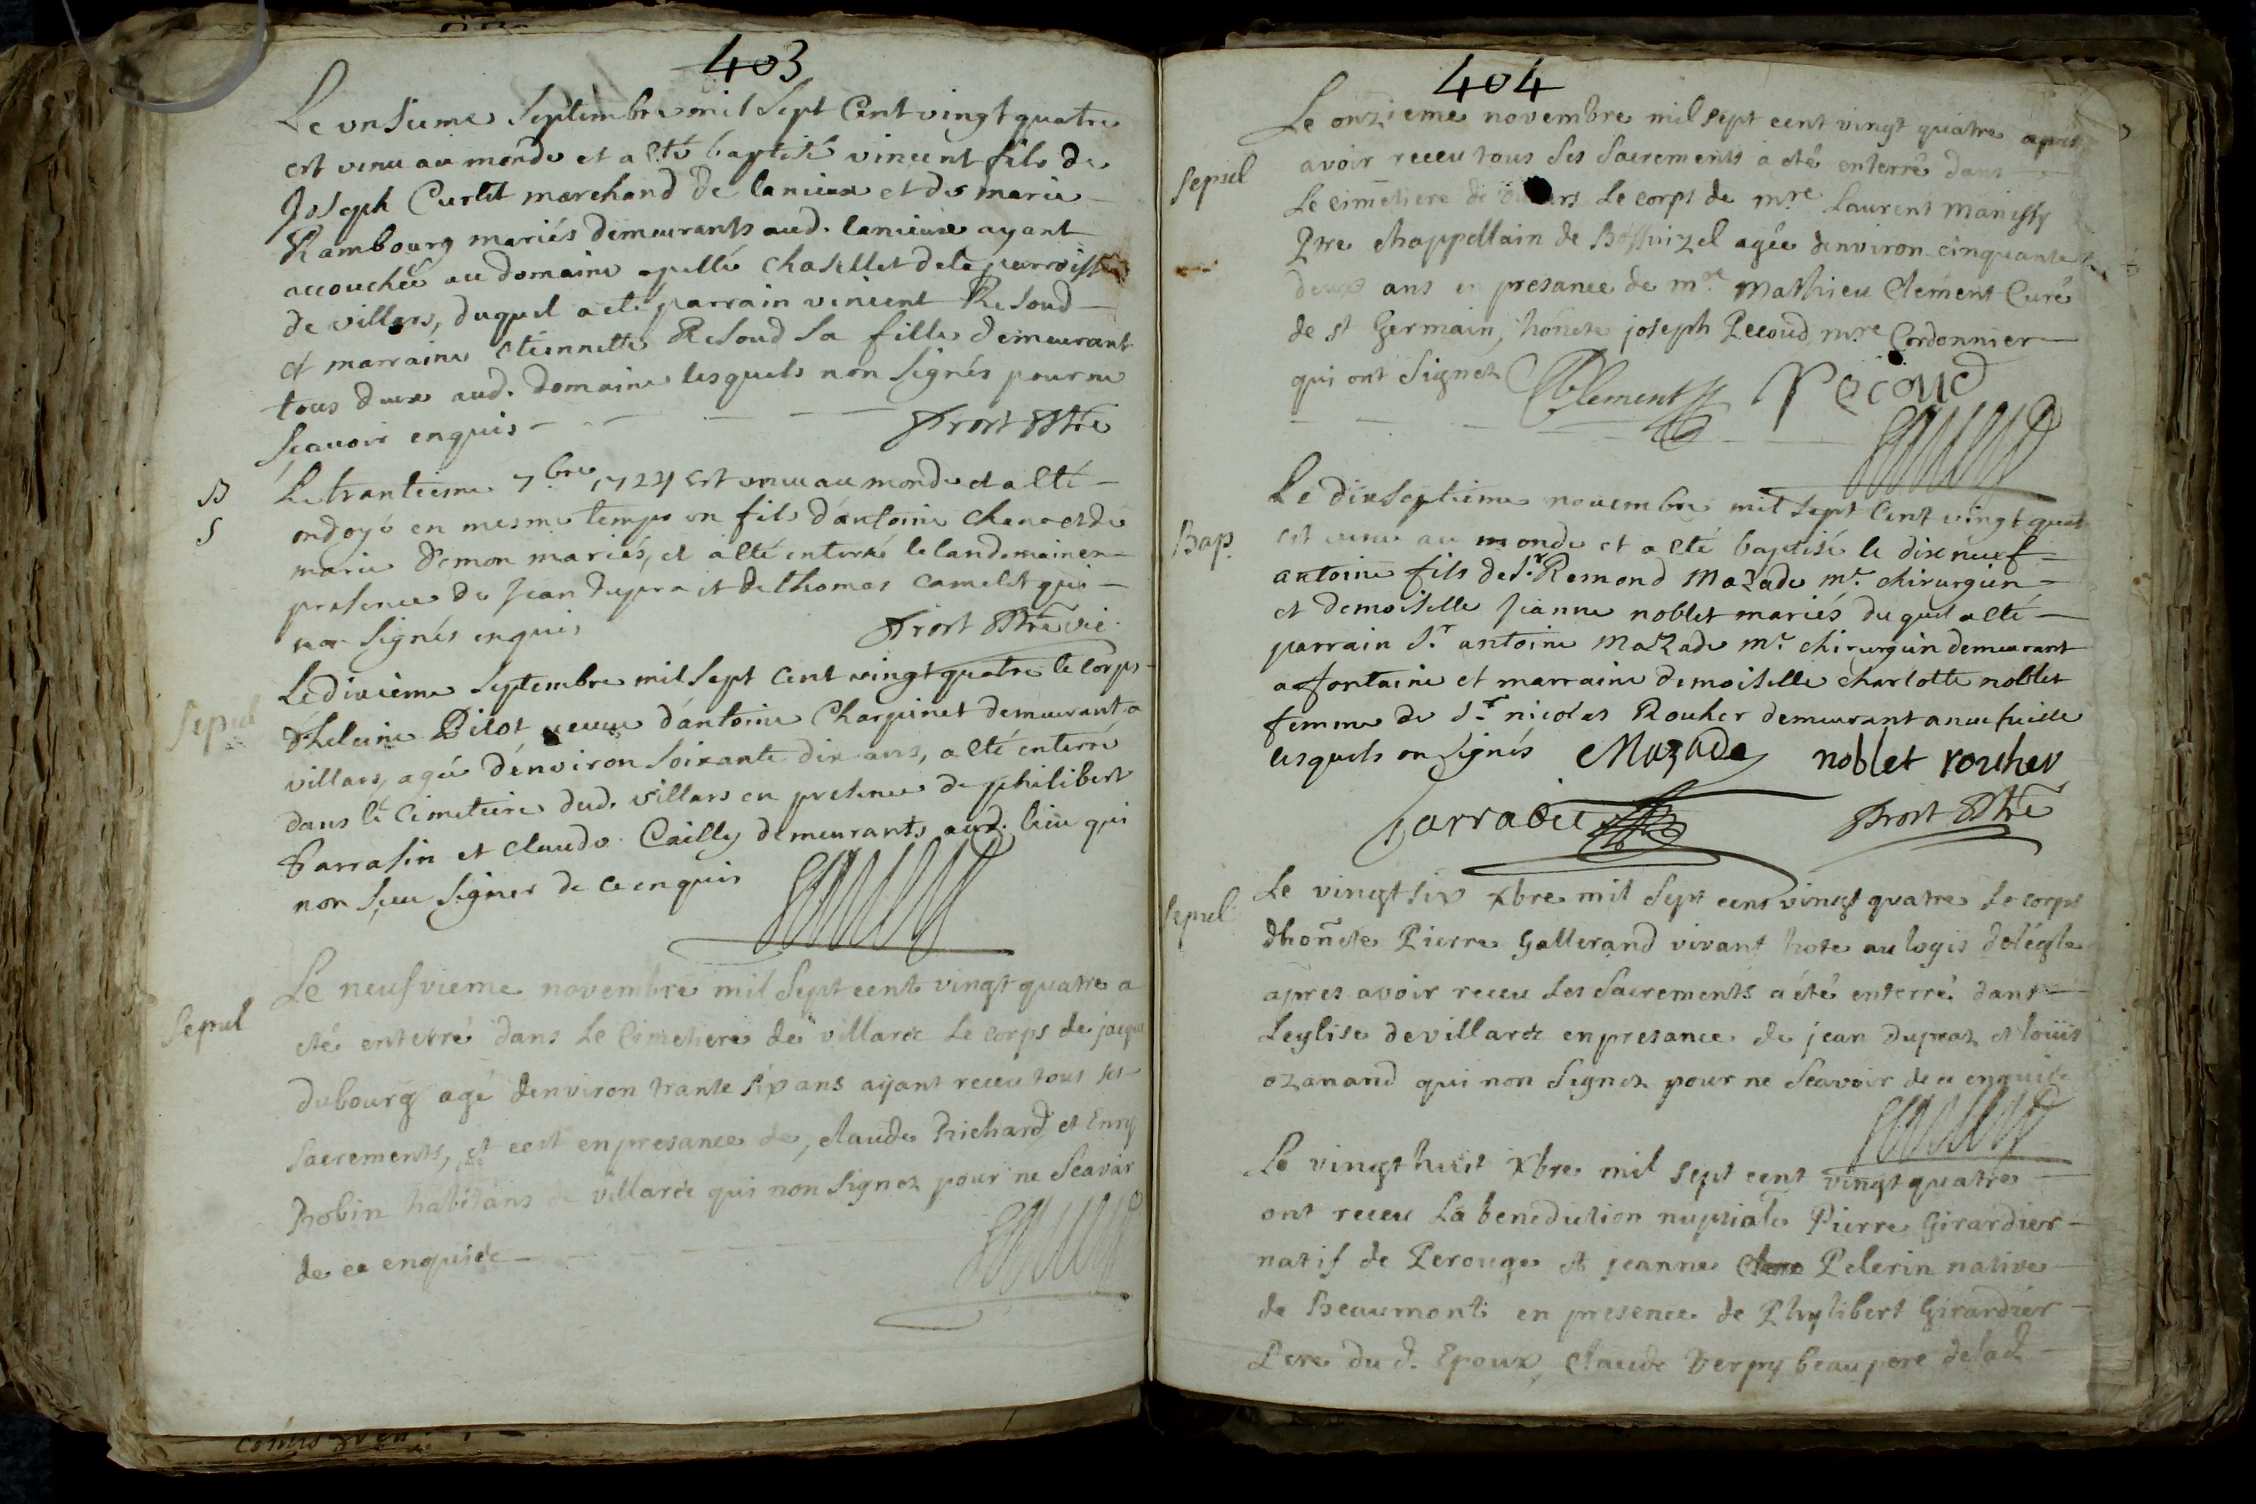 403
Le vnsieme Septembre mil Sept Cent vingt quatre
est venu au monde et a eté baptisé vincent fils de
Joseph Curtet marchand de lanieux et de marie
Rambourg mariés demeurants aud. lanieux ayant
accouchée au domaine apellé Chasellet dela parroisse
de villars, duquel a eté parrain vincent Resoud
et marraine etiennette Resoud Sa fille demeurant
tous deux aud. domaine lesquels non Signés pour ne
Scauoir enquis
Frort ptre
B
S
Le trantiesme 7bre 1724 est venu au monde et a eté
ondoyé en mesme temps un fils d'antoine et de
marie demon mariés, et a eté enterré le landemain en
presence de Jean dupra et de thomas Camelet qui
non Signés enquis
Frort ptre vic.
Sepul
Le dixieme Septembre mil Sept Cent vingt quatre le Corps
d'heleine Pilot veuve d'antoine Charpinet demeurant a
villars, agée d'environ Soixante dix ans, a eté enterré
dans le Cimetiere dud. villars en presence de philibert
Parrasin et claude Cailly demeurants aud. lieu qui
non Sceu Signer de ce enquis
Sepul
Le neufvieme novembre mil Sept cent vingt quatre a
eté enterré dans Le Cimetiere de villars Le corps de jaque
dubourg agé denviron trante Six ans ayant receu tous ses
Sacrements, et cest en presance de, claude Richard et Enry
Robin habitans de villars qui non Signez pour ne Scavoir
de ce enquise
404
Le onzieme novembre mil sept cent vingt quatre apres
Sepul
avoir receu tous Ses Sacrements a eté enterré dans
Le cimetiere de Le corps de mre Laurent manissy
Ptre chappellain de agée denviron cinquante
deux ans en presance de mre Mathieu Clement Curé
de st Germain, honete joseph Pecoud mre Cordonnier
qui ont Signez Clement Pecoud
Bap.
Le dixseptieme nouembre mil Sept Cent vingt quat
est venu au monde et a eté baptisé le dix neuf
antoine fils de Sr Remond Mazade mr chirurgien
et demoiselle Jeanne noblet mariés du quel a eté
parrain Sr antoine Mazade mr chirurgien demeurant
a fontaine et marraine demoiselle charlotte noblet
femme de Sr nicolas Roucher demeurant a
lesquels on Signés Mazade noblet roucher
Frort ptre
Sepul
Le vingt Six xbre mil Sept cent vingt quatre Le corps
dhonete Pierre Gallerand vivant hote au logis delégle
apres avoir receu Les Sacrements a été enterré dans
Leglise de villars en presance de jean dupraz et louis
ozanand qui non Signez pour ne Scavoir de ce enquise
Le vingt huit xbre mil Sept cent vingt quatre
ont receu La benediction nuptiale Pierre Girardier
natif de Perouge et jeanne Pelerin native
de Beaumont en presence de Phylibert Girardier
Pere du d. Epoux, claude Verpy beau pere delad